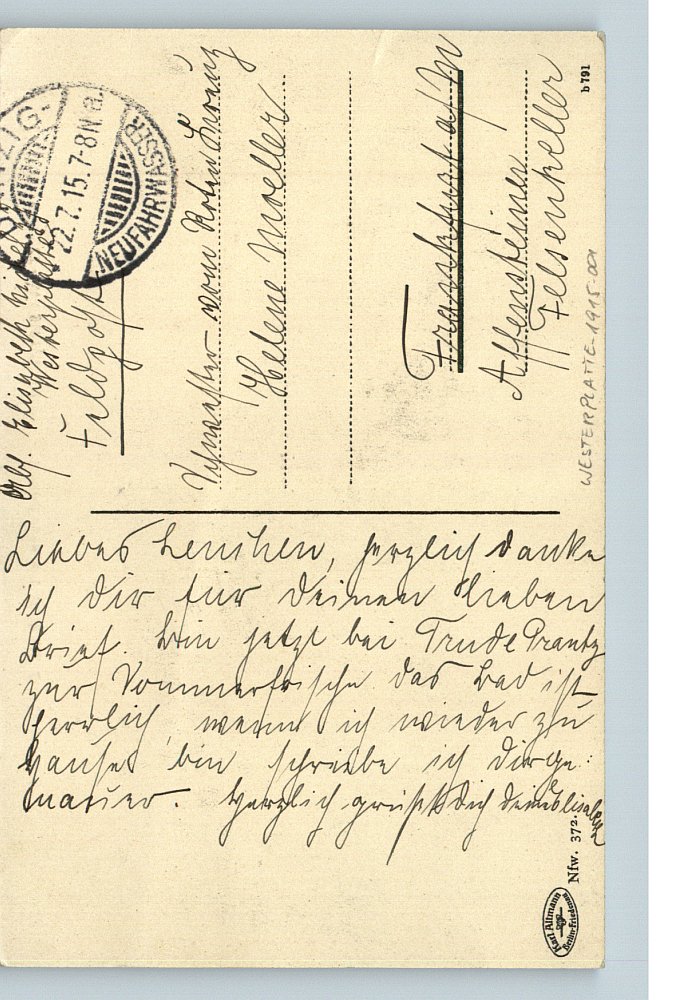 DANZIG-
22.7.15.7-8N a.
NEUFAHRWASSER
Abs. Elisabeth
Westerplatte
Feldpost
Schwester vom Roten Kreuz
Helene Moeller
Frankfurt a/M
Affensteiner
Felsenkeller
b 791
WESTERPLATTE-1915-001
Liebes Lenchen, herzlich danke
ich dir für deinen lieben
Brief. Bin jetzt bei Trude Prantz
zur Sommerfrische das Bad ist
herrlich, wenn ich wieder zu
Hause bin schreibe ich dir ge:
nauer. Herzlich grüßt dich deine Elisabeth
Nfw. 372.
Karl Altmann
Berlin-Friedenau